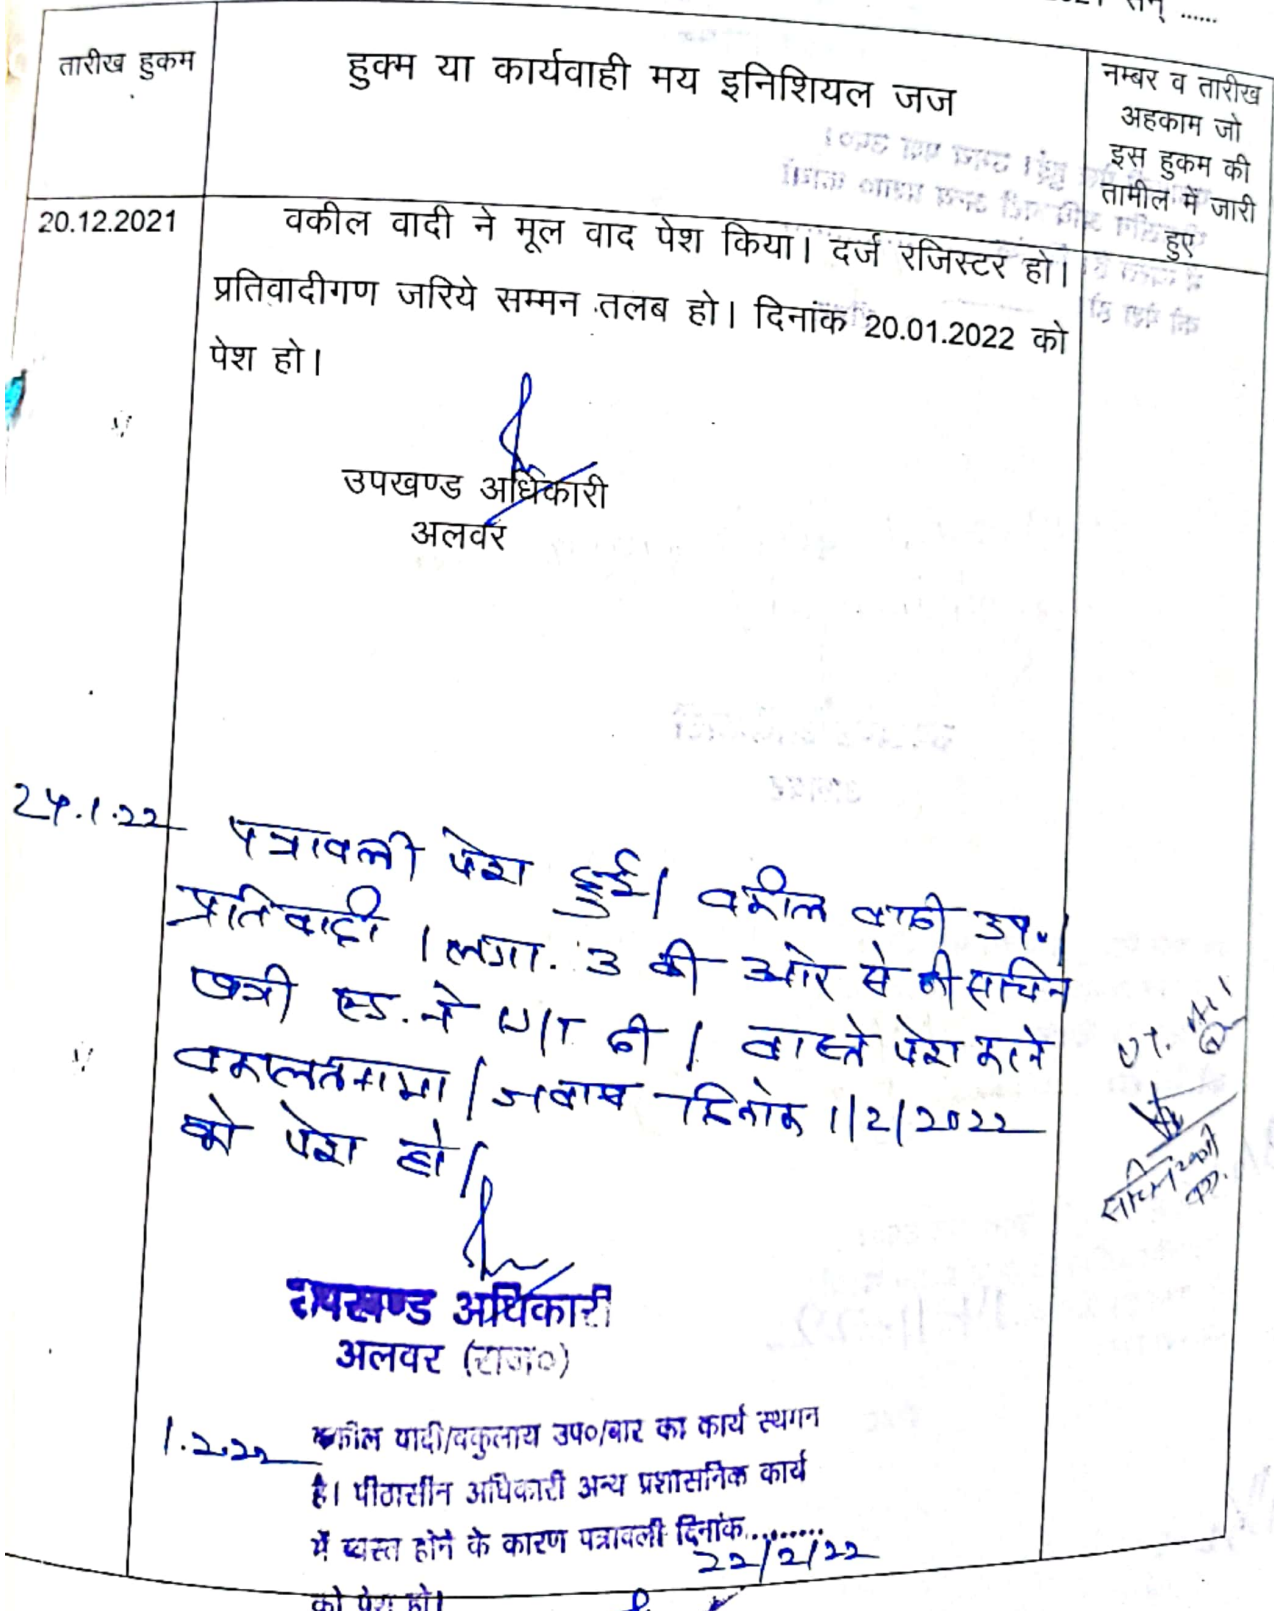 2021 सन् ......
तारीख हुकम
हुक्म या कार्यवाही मय इनिशियल जज
नम्बर व तारीख
अहकाम जो
इस हुकम की
तामील में जारी
हुए
20.12.2021
वकील वादी ने मूल वाद पेश किया। दर्ज रजिस्टर हो।
प्रतिवादीगण जरिये सम्मन तलब हो। दिनांक 20.01.2022 को
पेश हो।
उपखण्ड अधिकारी
अलवर
पत्रावली पेश हुई। वकील वादी उप.।
प्रतिवादी 1 लगा. 3 की ओर से श्री सचिन
खत्री एड. ने U/T दी। वास्ते पेश करने
वकालतनामा / जवाब दिनांक 1/2/2022
को पेश हो।
उपखण्ड अधिकारी
अलवर (राज०)
1.2.22
वकील वादी/वकुलाय उप०/बार का कार्य स्थगन
है। पीठासीन अधिकारी अन्य प्रशासनिक कार्य
में व्यस्त होने के कारण पत्रावली दिनांक.........
22/2/22
को पेश हो।